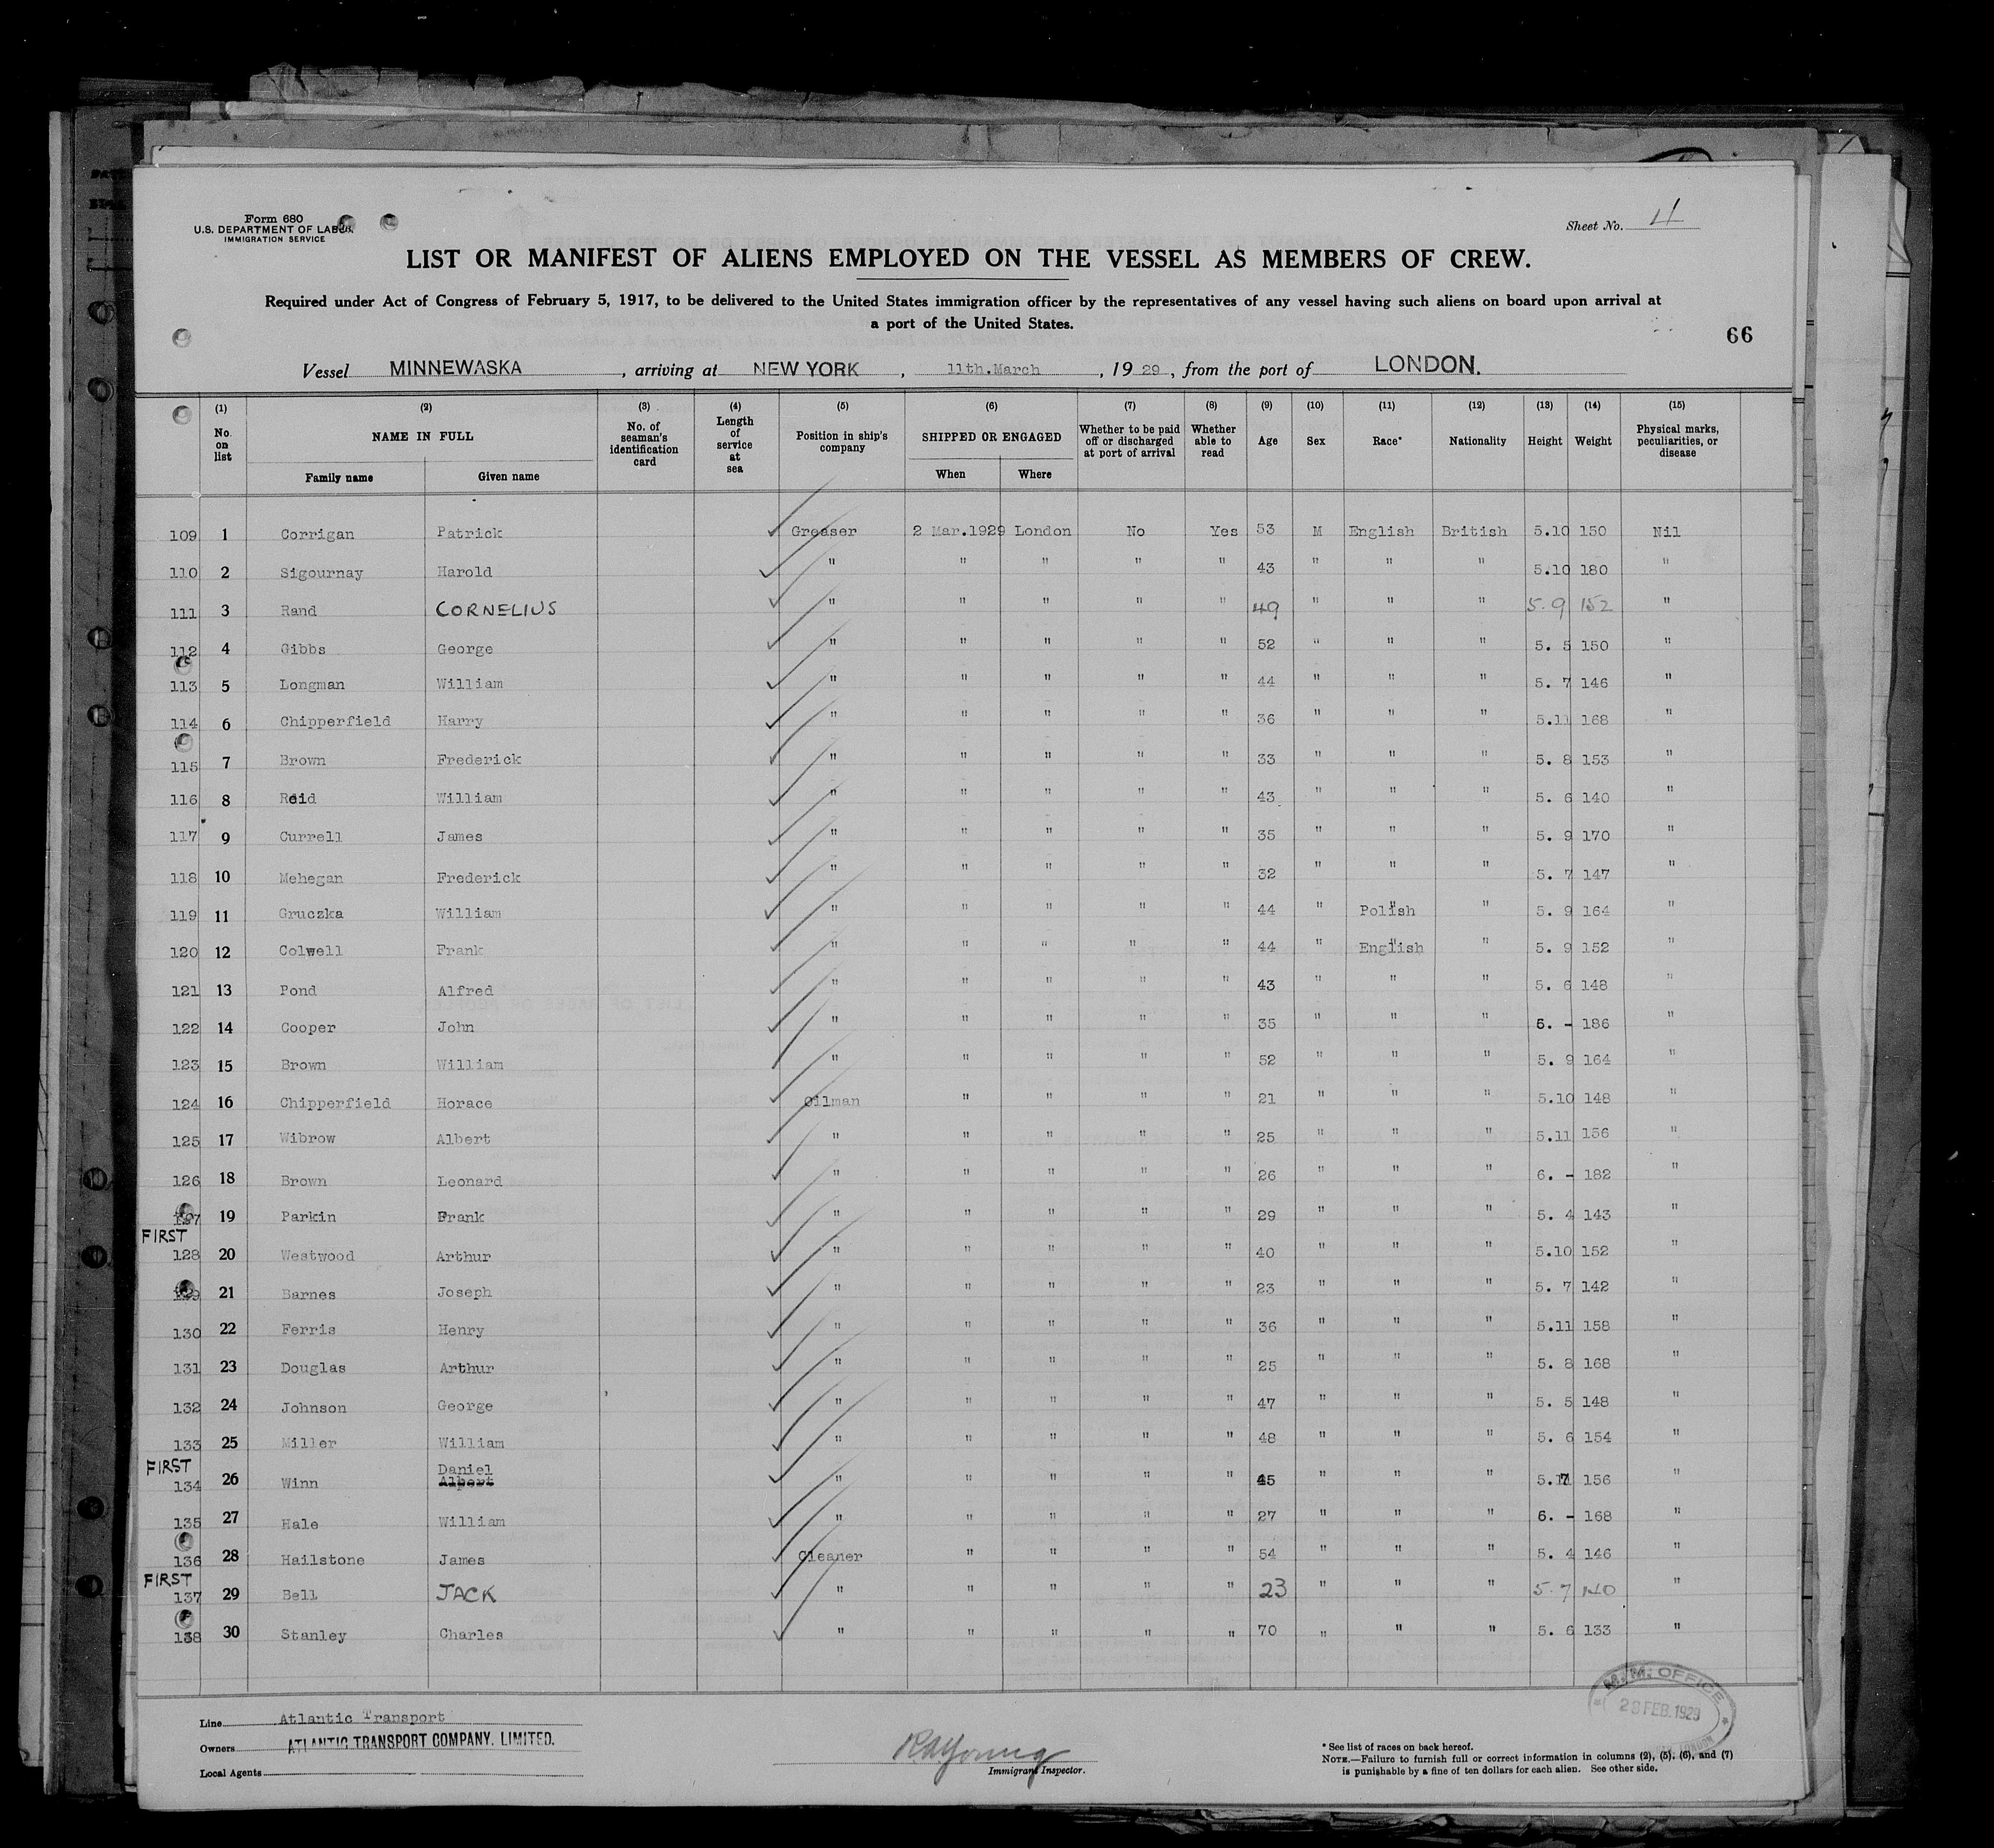 Form 680
U.S. DEPARTMENT OF LABOR
IMMIGRATION SERVICE
Sheet No. 4
LIST OR MANIFEST OF ALIENS EMPLOYED ON THE VESSEL AS MEMBERS OF CREW.
Required under Act of Congress of February 5, 1917, to be delivered to the United States immigration officer by the representatives of any vessel having such aliens on board upon arrival at
a port of the United States.
66
Vessel MINNEWASKA, arriving at NEW YORK, 11th.March, 1929, from the port of LONDON.
(1) (2) (3) (4) (5) (6) (7) (8) (9) (10) (11) (12) (13) (14) (15)
No. on list NAME IN FULL No. of seaman's identification card Length of service at sea Position in ship's company SHIPPED OR ENGAGED Whether to be paid off or discharged at port of arrival Whether able to read Age Sex Race* Nationality Height Weight Physical marks, peculiarities, or disease
Family name Given name When Where
109 1 Corrigan Patrick Greaser 2 Mar.1929 London No Yes 53 M English British 5.10 150 Nil
110 2 Sigournay Harold " " " " " 43 " " " 5.10 180 "
111 3 Rand CORNELIUS " " " " " 49 " " " 5.9 152 "
112 4 Gibbs George " " " " " 52 " " " 5. 5 150 "
113 5 Longman William " " " " " 44 " " " 5. 7 146 "
114 6 Chipperfield Harry " " " " " 36 " " " 5.11 168 "
115 7 Brown Frederick " " " " " 33 " " " 5. 8 153 "
116 8 Reid William " " " " " 43 " " " 5. 6 140 "
117 9 Currell James " " " " " 35 " " " 5. 9 170 "
118 10 Mehegan Frederick " " " " " 32 " " " 5. 7 147 "
119 11 Gruczka William " " " " " 44 " Polish " 5. 9 164 "
120 12 Colwell Frank " " " " " 44 " English " 5. 9 152 "
121 13 Pond Alfred " " " " " 43 " " " 5. 6 148 "
122 14 Cooper John " " " " " 35 " " " 6. - 186 "
123 15 Brown William " " " " " 52 " " " 5. 9 164 "
124 16 Chipperfield Horace Oilman " " " " 21 " " " 5.10 148 "
125 17 Wibrow Albert " " " " " 25 " " " 5.11 156 "
126 18 Brown Leonard " " " " " 26 " " " 6. - 182 "
127 19 Parkin Frank " " " " " 29 " " " 5. 4 143 "
FIRST
128 20 Westwood Arthur " " " " " 40 " " " 5.10 152 "
129 21 Barnes Joseph " " " " " 23 " " " 5. 7 142 "
130 22 Ferris Henry " " " " " 36 " " " 5.11 158 "
131 23 Douglas Arthur " " " " " 25 " " " 5. 8 168 "
132 24 Johnson George " " " " " 47 " " " 5. 5 148 "
133 25 Miller William " " " " " 48 " " " 5. 6 154 "
FIRST Daniel
134 26 Winn Albert " " " " " 45 " " " 156 "
135 27 Hale William " " " " " 27 " " " 6. - 168 "
136 28 Hailstone James Cleaner " " " " 54 " " " 5. 4 146 "
FIRST
137 29 Bell JACK " " " " " 23 " " " 5.7 140 "
138 30 Stanley Charles " " " " " 70 " " " 5. 6 133 "
Line Atlantic Transport
Owners ATLANTIC TRANSPORT COMPANY. LIMITED.
Local Agents
RAYoung
Immigrant Inspector.
M.M. OFFICE
28 FEB.1929
LONDON
* See list of races on back hereof.
NOTE.—Failure to furnish full or correct information in columns (2), (5), (6), and (7)
is punishable by a fine of ten dollars for each alien. See other side.